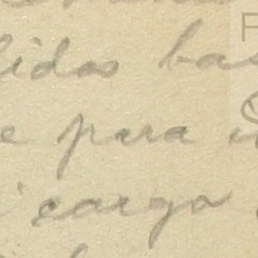 lidas bas
e para
carga